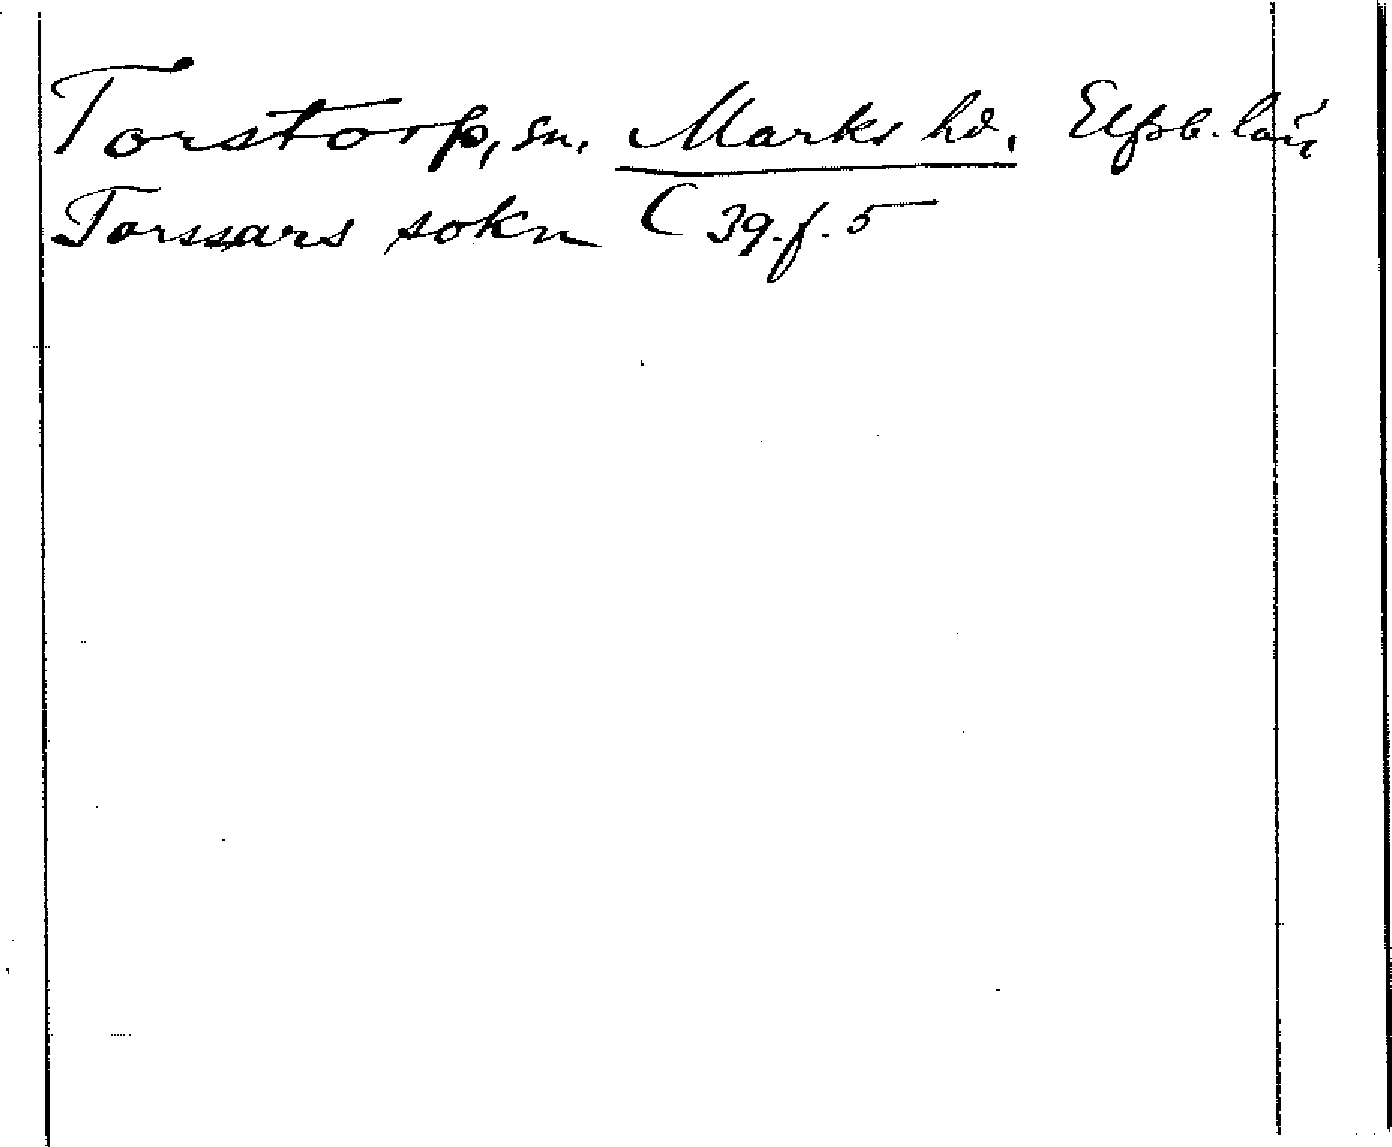 Torstorp, sn. Marks hd. Elfsb. län
Torssars sokn C 39. f. 5